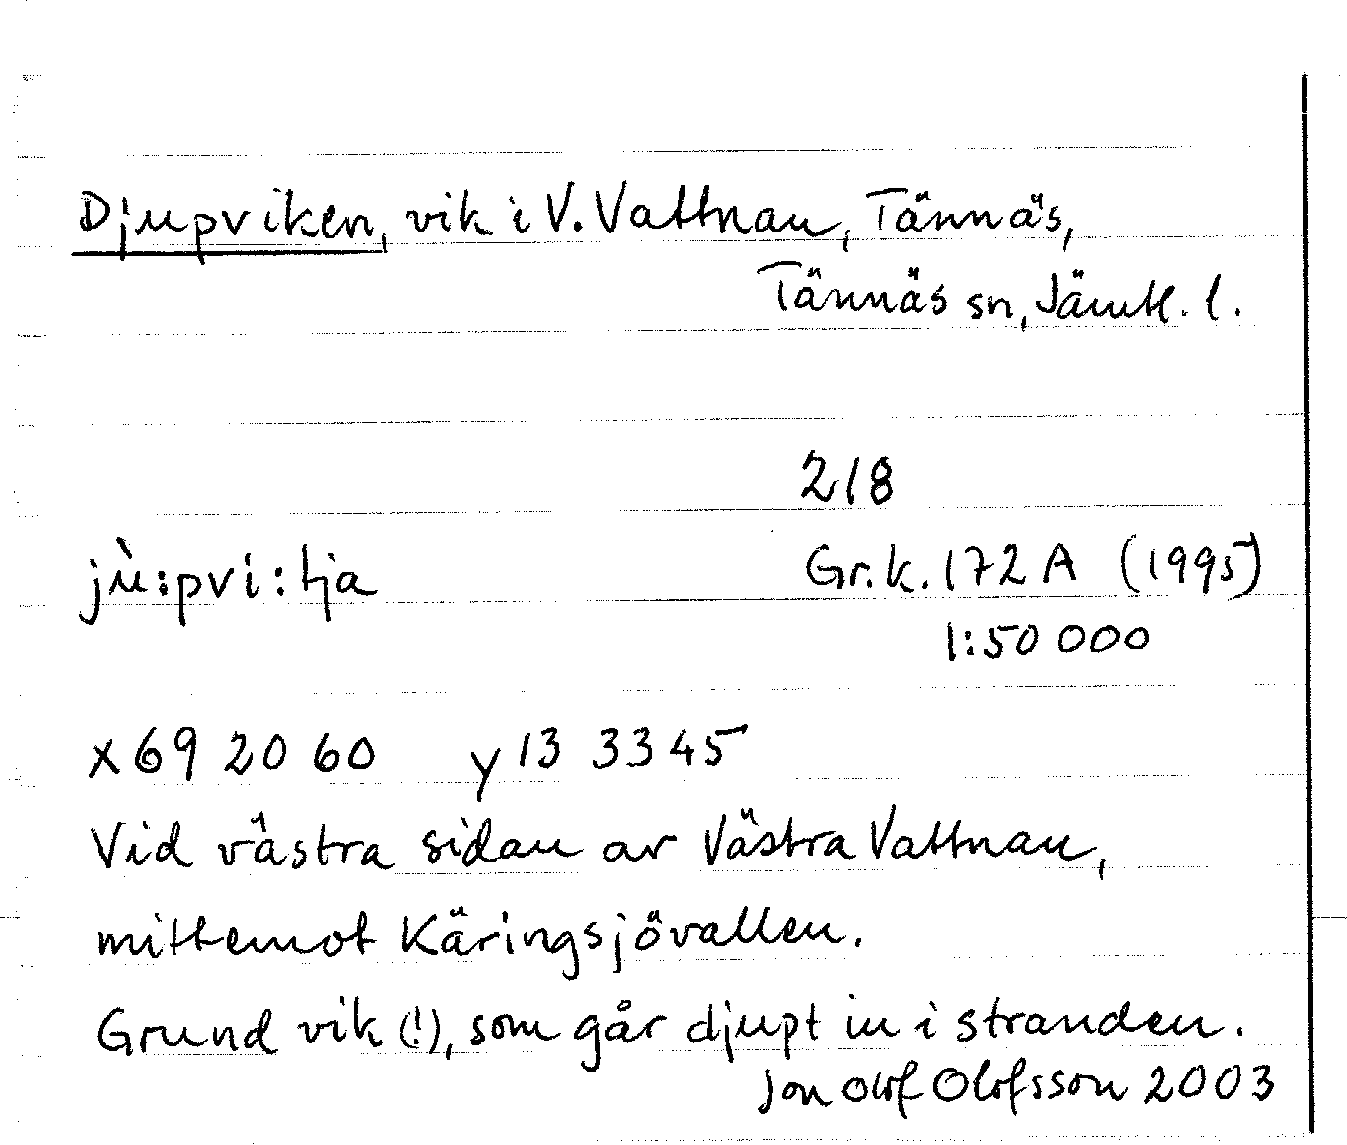 Djupviken, vik i V. Vattnan, Tännäs,
Tännäs sn, Jämtl. l.
218
jù:pvi:tja Gr.k. 172 A (1995)
1:50 000
x 69 20 60 y 13 33 45
Vid västra sidan av Västra Vattnan,
mittemot Käringsjövallen.
Grund vik (!), som går djupt in i stranden.
Jon Olof Olofsson 2003